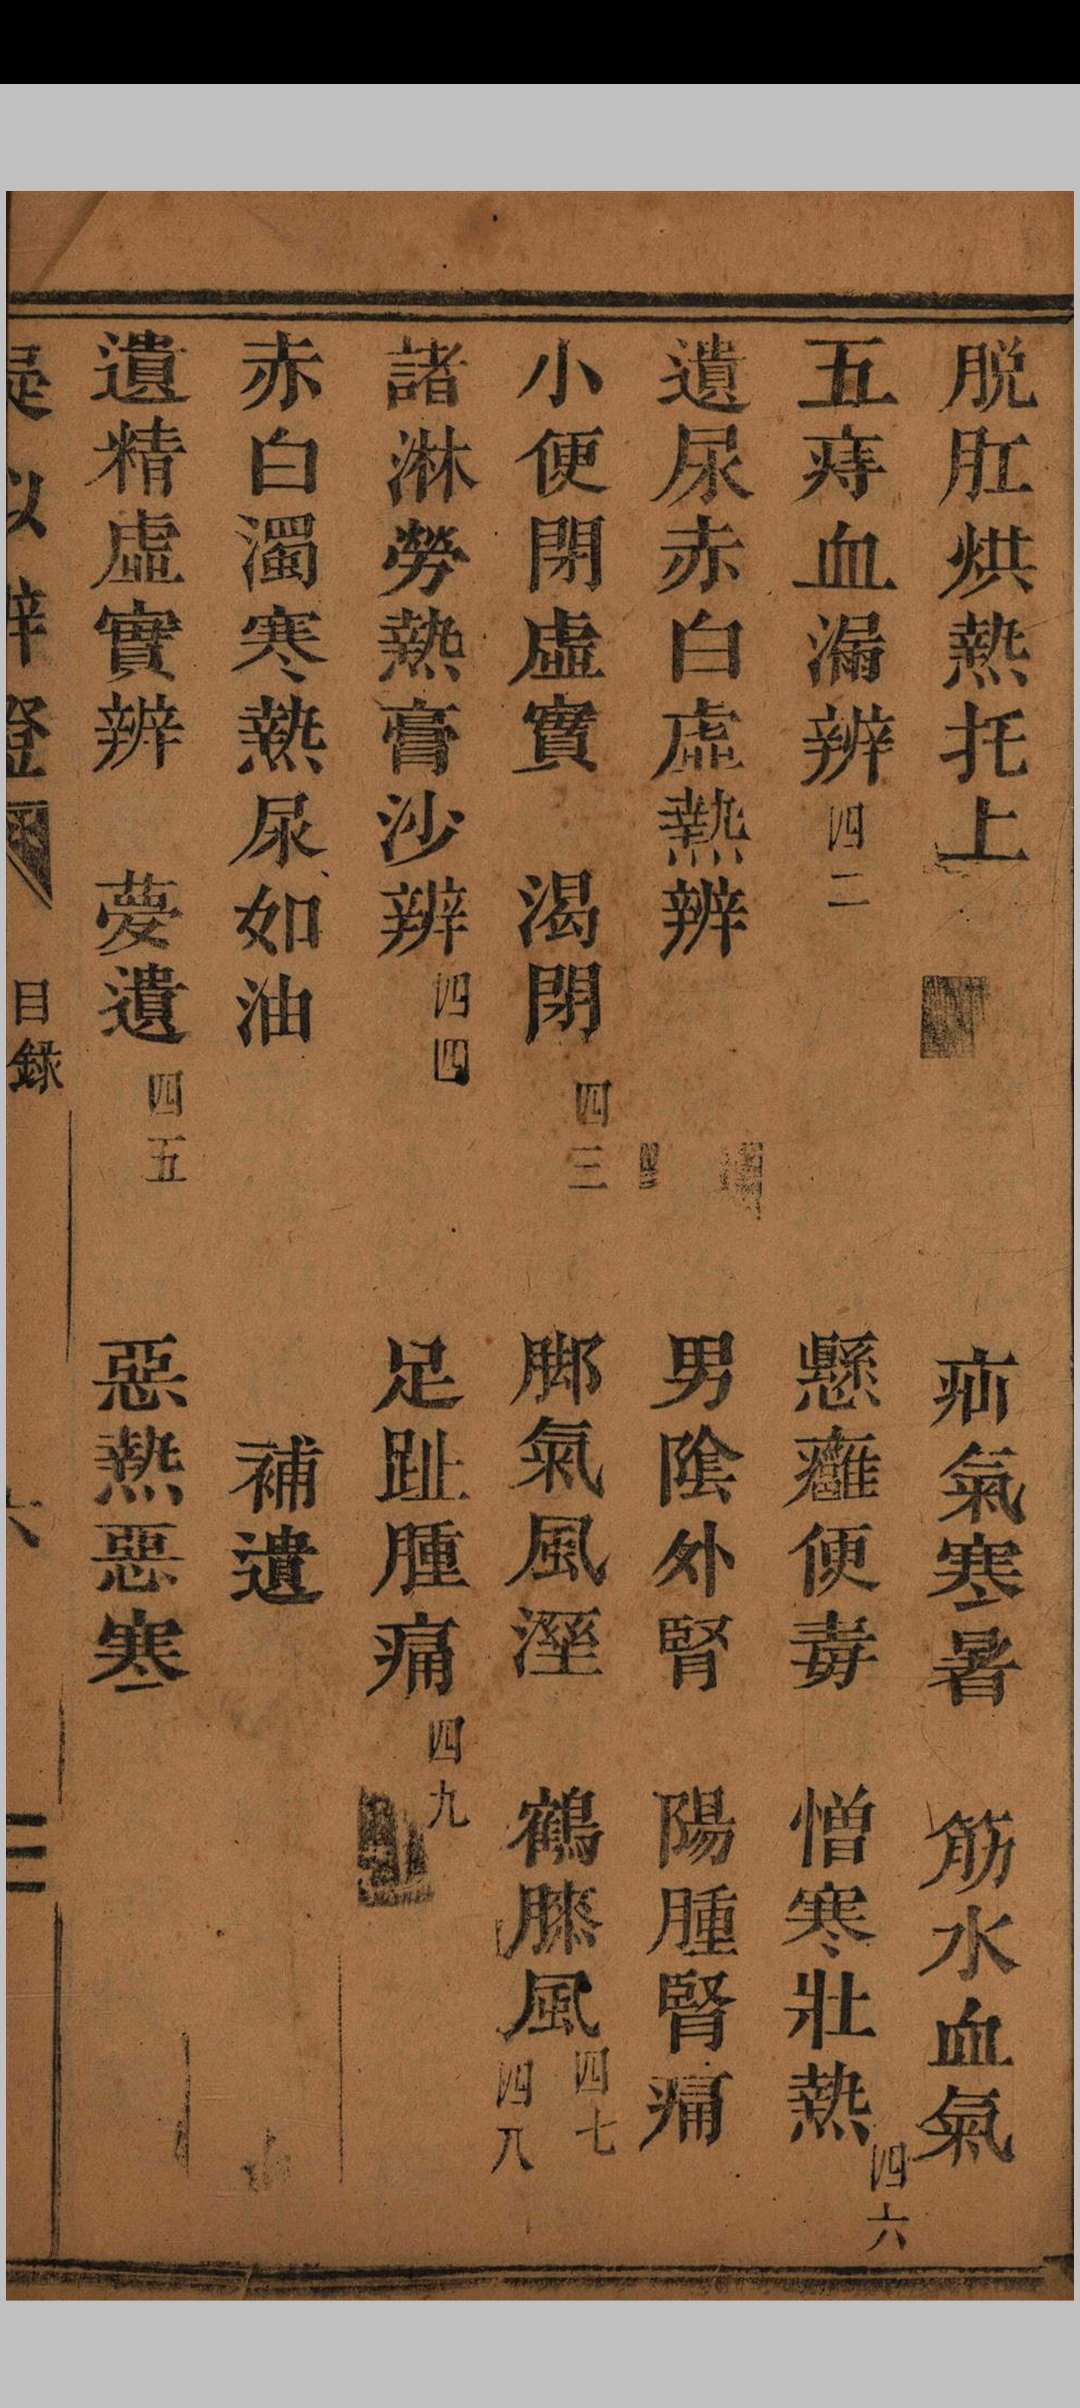 脱肛烘熱托上
五痔血漏辨 四二
遺尿赤白虛熱辨
小便閉虛實 渴閉 四三
諸淋勞熱膏沙辨 四四
赤白濁寒熱尿如油
遺精虛實辨 夢遺 四五
疝氣寒暑 筋水血氣
懸癰便毒 憎寒壯熱 四六
男陰外腎 陽腫腎痛
脚氣風溼 鶴膝風 四七 四八
足趾腫痛 四九
補遺
惡熱惡寒
目錄
六